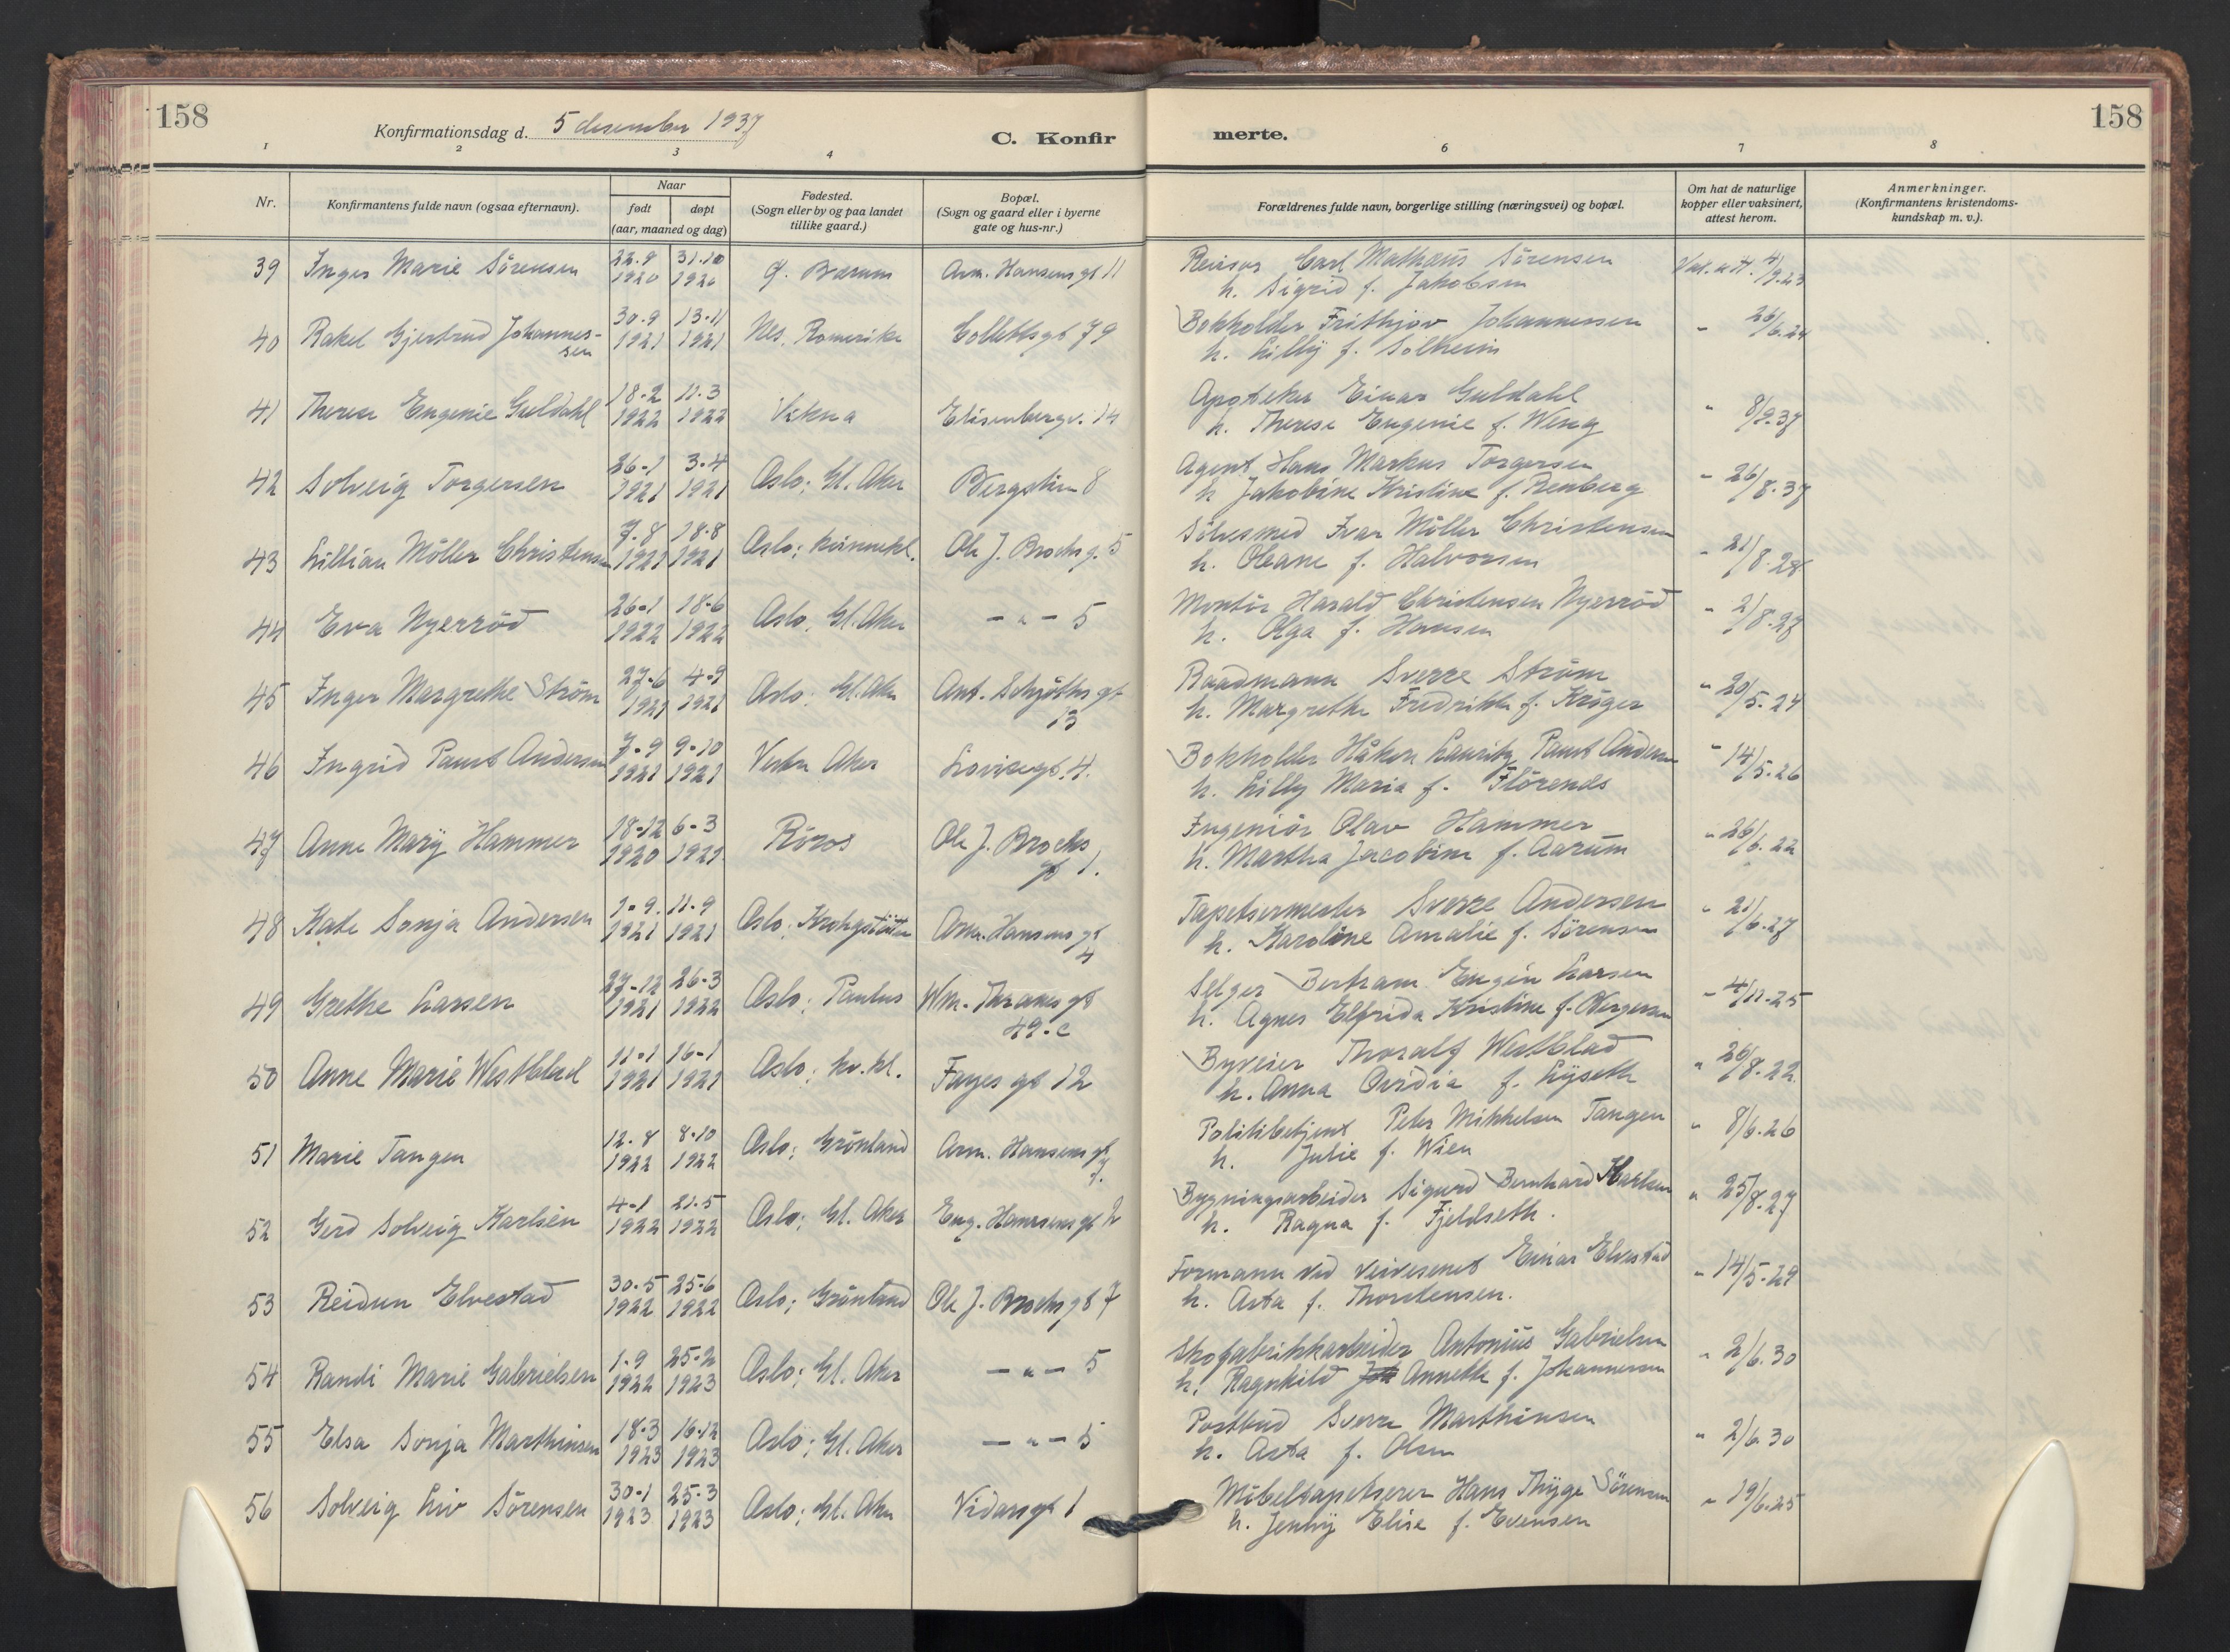 158
Konfirmationsdag d. 5 desember 1937
C. Konfir
merte.
158
1 2 3 4 6 7 8
Nr.
Konfirmantens fulde navn (ogsaa efternavn).
Naar
født døpt
(aar, maaned og dag)
Fødested.
(Sogn eller by og paa landet
tillike gaard.)
Bopæl.
(Sogn og gaard eller i byerne
gate og hus-nr.)
Forældrenes fulde navn, borgerlige stilling (næringsvei) og bopæl.
Om hat de naturlige
kopper eller vaksinert,
attest herom.
Anmerkninger.
(Konfirmantens kristendoms-
kundskap m. v.).
39 Inger Marie Sörensen 22.9 1920 31.10 1920 Ø. Bærum Arm. Hansens gt 11
Revisor Carl Mathæus Sörensen
h. Sigrid f. Jakobsen
Vak. att. 4/9.23
40 Rakel Gjertrud Johannes-
sen 30-9 1921 13-11 1921 Nes, Romerike Colletts gt 79
Bokholder Frithjov Johannessen
h. Lilly f. Solheim
" 26/6.24
41 Therese Engenie Guldahl 18-2 1922 11-3 1922 Vikna Elisenbergv. 14
Apoteker Einar Guldahl
h. Therese Eugenie f. Weng
" 8/9.37
42 Solveig Torgersen 26-1 1921 3-4 1921 Oslo; Gl. Aker Bergstien 8
Agent Hans Markus Torgersen
h. Jakobine Kristine f. Renberg
" 26/8.37
43 Lillian Möller Christensen 7-8 1921 18-8 1921 Oslo; kvinnekl. Ole J. Brochs g. 5
Sölvsmed Ivar Möller Christensen
h. Oleane f. Halvorsen
" 21/8.28
44 Eva Nyerröd 26-1 1922 18-6 1922 Oslo; Gl. Aker — " — 5
Montör Harald Christensen Nyerröd
h. Olga f. Hansen
" 2/8.27
45 Inger Margrethe Ström 27-6 1921 4-9 1921 Oslo; Gl. Aker Ant. Schjöths gt
13
Raadmann Sverre Ström
h. Margrethe Fredrikke f. Kröger
" 20/5.24
46 Ingrid Paust Andersen 7-9 1921 9-10 1921 Vestre Aker Lovisegt. 4.
Bokholder Håkon Lauritz Paust Andersen
h. Lilly Marie f. Florends
" 14/5.26
47 Anne Mary Hammer 18-12 1920 6-3 1921 Röros Ole J. Brochs
gt 1.
Ingeniör Olav Hammer
h. Martha Jacobine f. Aarum
" 26/6.22
48 Kate Sonja Andersen 1-9. 1921 11-9 1921 Oslo; Krohgstötten Arm. Hansens gt
4
Tapetsermester Sverre Andersen
h. Karoline Amalie f. Sörensen
" 21/6.27
49 Grethe Larsen 27-12 1921 26-3 1922 Oslo; Paulus Wm. Thranes gt
49-c
Selger Bertram Eugen Larsen
h. Agnes Elfrida Kristine f.
" 4/11-25
50 Anne Marie Westblad 11-1 1921 16-1 1921 Oslo; kv. kl. Fayes gt 12
Byveier Thoralf Westblad
h. Anna Ovidia f. Lyseth
" 26/8.22
51 Marie Tangen 12-8 1922 8-10 1922 Oslo; Grönland Arm. Hansens gt
7.
Politibetjent Peter Mikkelsen Tangen
h. Julie f. Wien
" 8/6.26
52 Gerd Solveig Karlsen 4-1 1922 21-5 1922 Oslo; Gl. Aker Eug. Hanssens gt 2
Bygningsarbeider Sigurd Bernhard Karlsen
h. Ragna f. Fjeldseth.
" 25/8.27
53 Reidun Elvestad 30-5 1922 25-6 1922 Oslo; Grönland Ole J. Brochs gt 7
Formann ved veivesenet Einar Elvestad
h. Asta f. Thorstensen.
" 14/5.29
54 Randi Marie Gabrielsen 1-9 1922 25-2 1923 Oslo; Gl. Aker — " — 5
Skofabrikkarbeider Antonius Gabrielsen
h. Ragnhild Annette f. Johannessen
" 2/6.30
55 Elsa Sonja Marthinsen 18-3 1923 16-12 1923 Oslo; Gl. Aker — " — 5
Postbud Sverre Marthinsen
h. Asta f. Olsen
" 2/6.30
56 Solveig Liv Sörensen 30-1 1923 25-3 1923 Oslo; Gl. Aker Vidarsgt 1
Möbeltapetserer Hans Thyge Sörensen
h. Jenny Elise f. Evensen
" 19/6.25